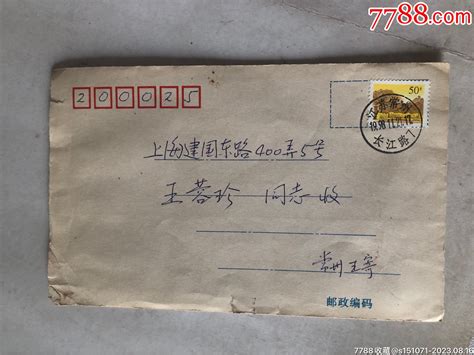 7788.com
200025
50分
江苏常州
1998.11.21.12
长江路7
上海建国东路400弄5号
王蓉珍 同志收
常州王寄
邮政编码
7788收藏@s151071-2023.08.16